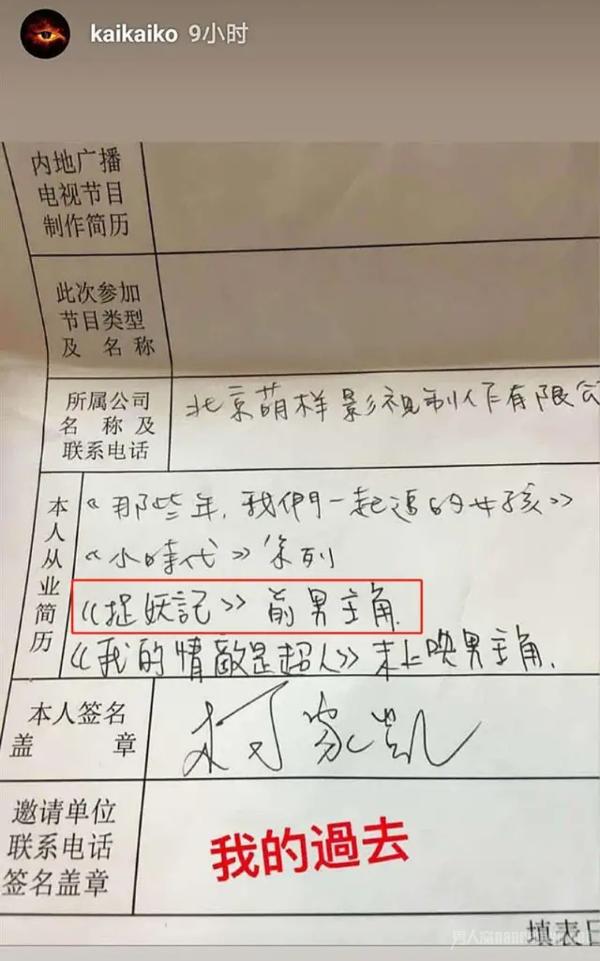 kaikaiko 9小时
内地广播
电视节目
制作简历
此次参加
节目类型
及 名 称
所属公司
名 称 及
联系电话
北京萌样影视制作有限公
本人从业简历
《那些年,我們一起追的女孩》
《小時代》系列
《捉妖記》前男主角.
《我的情敵是超人》未上映男主角.
本人签名
盖 章
柯家凯
邀请单位
联系电话
签名盖章
我的過去
填表日
男人窝